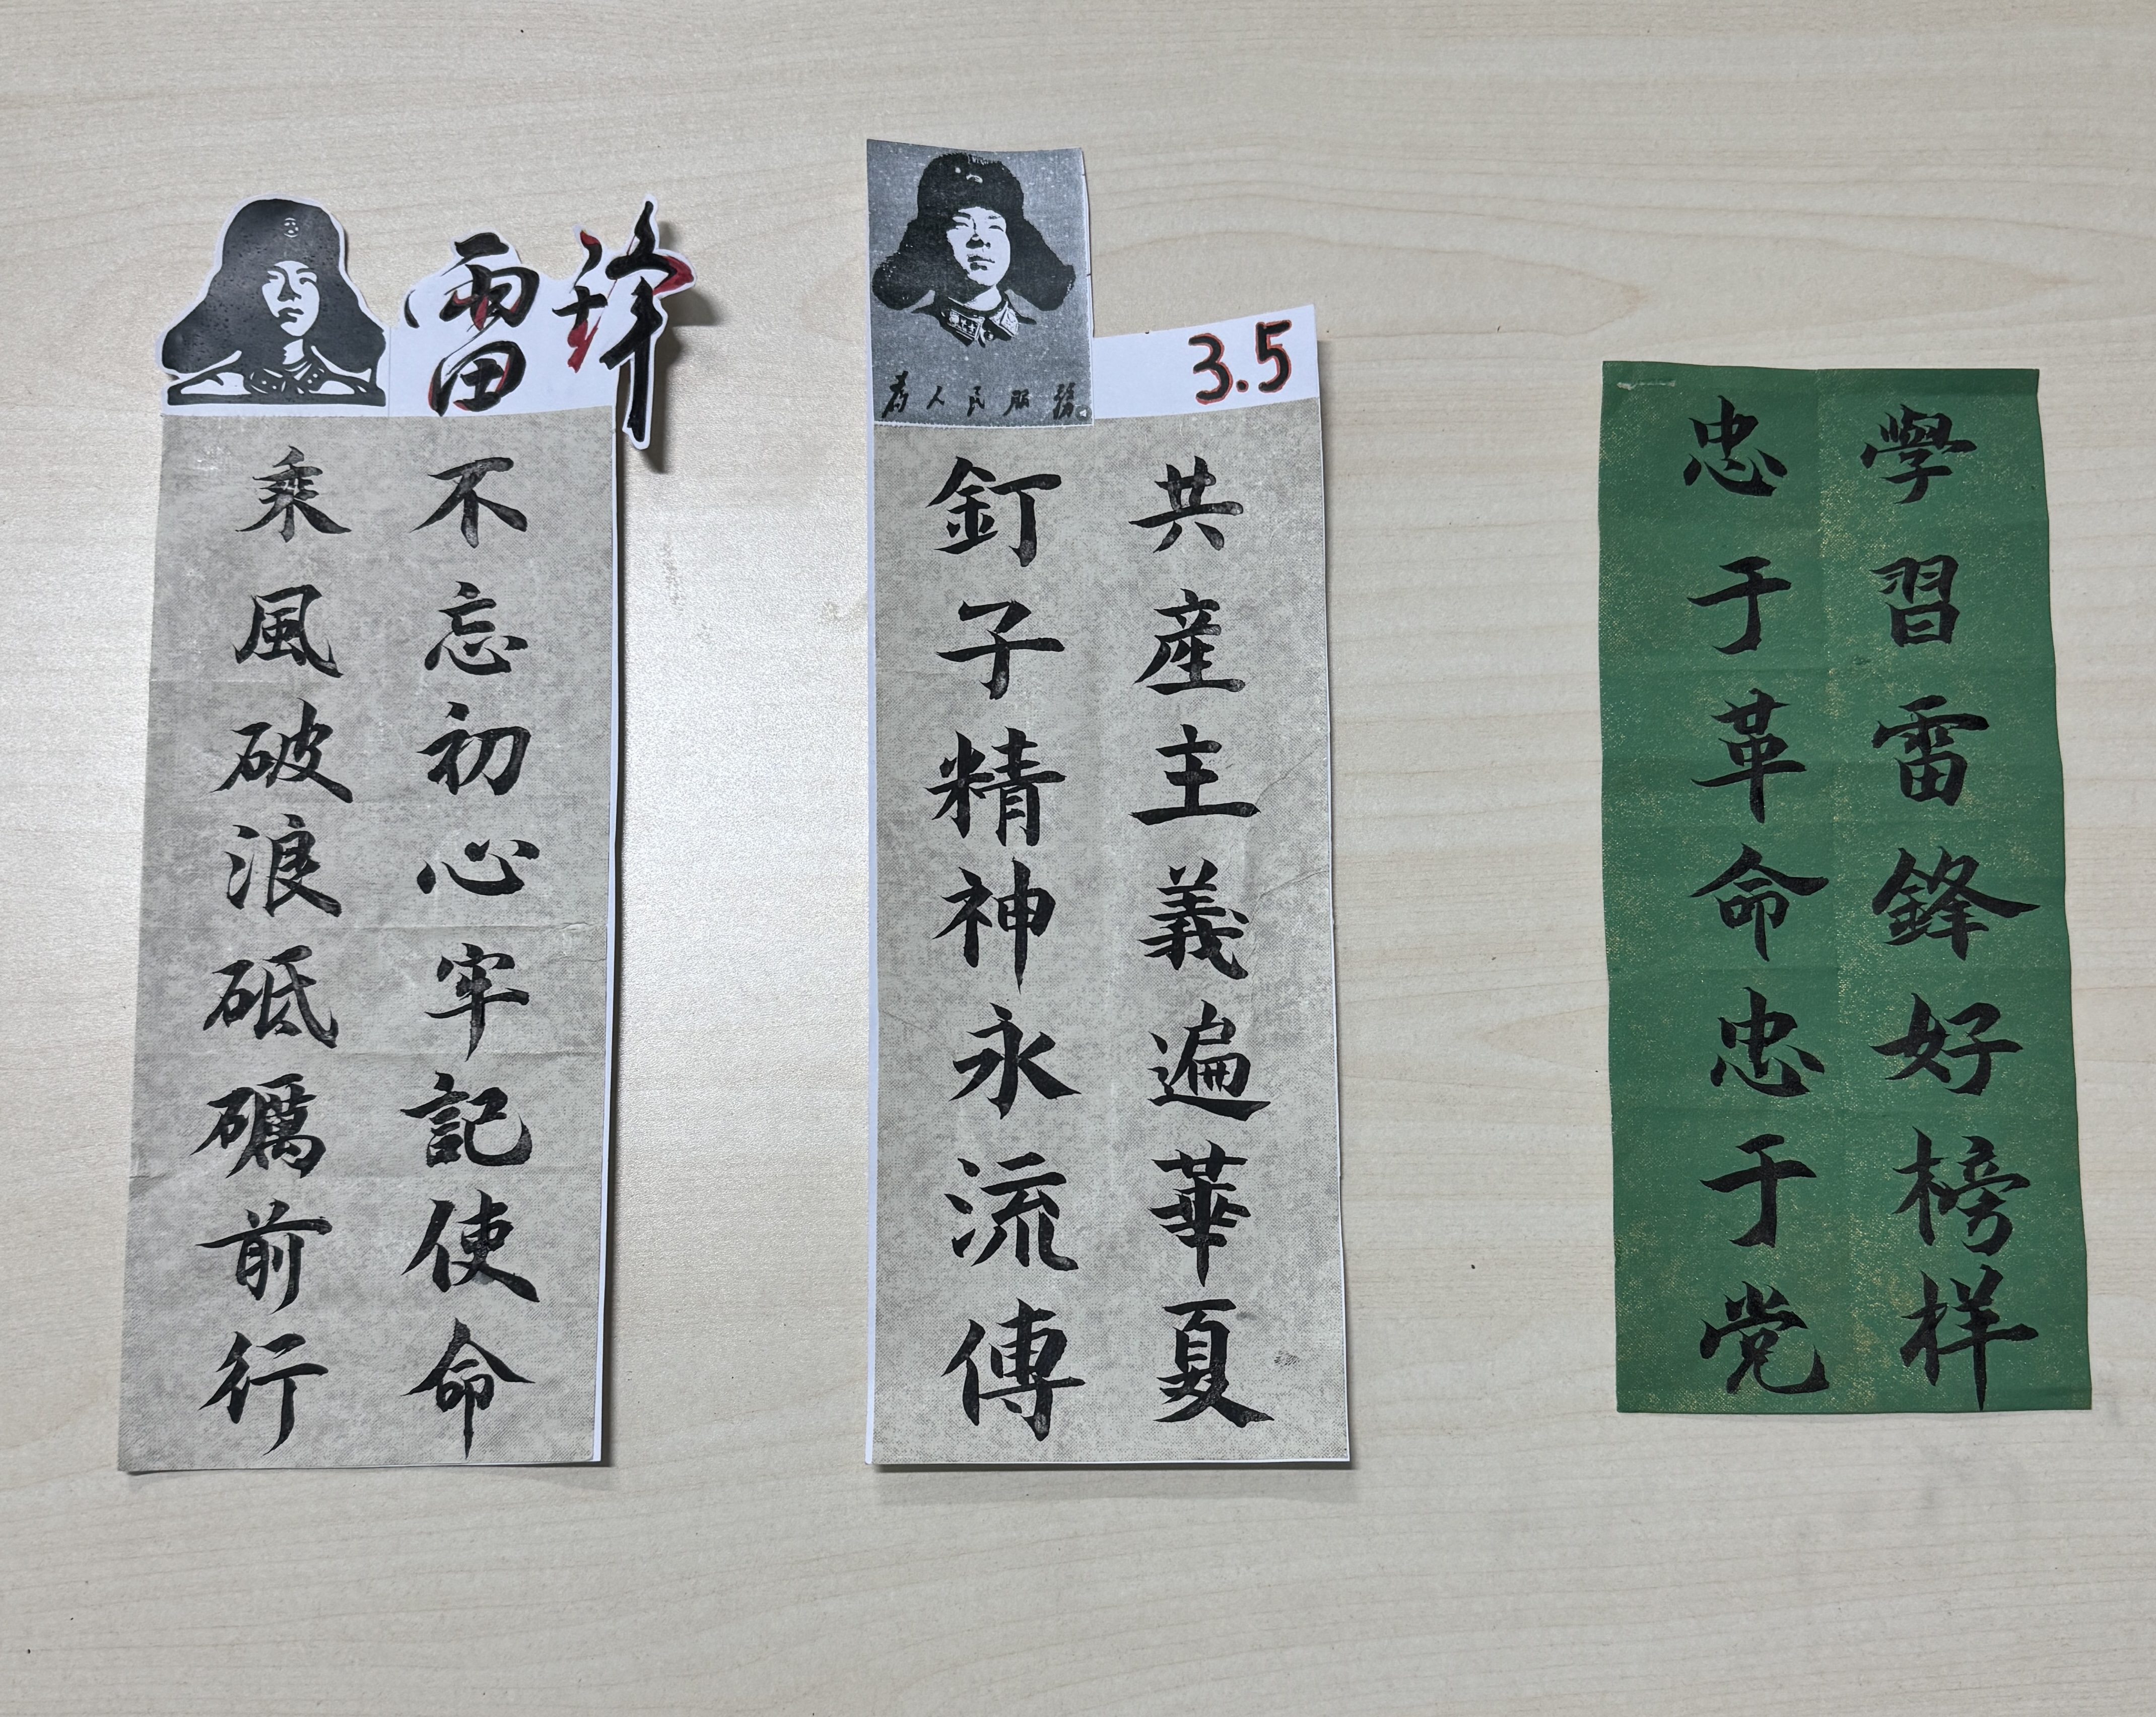 雷锋
不忘初心牢記使命
乘風破浪砥礪前行
為人民服務
3.5
共産主義遍華夏
釘子精神永流傳
學習雷鋒好榜样
忠于革命忠于党